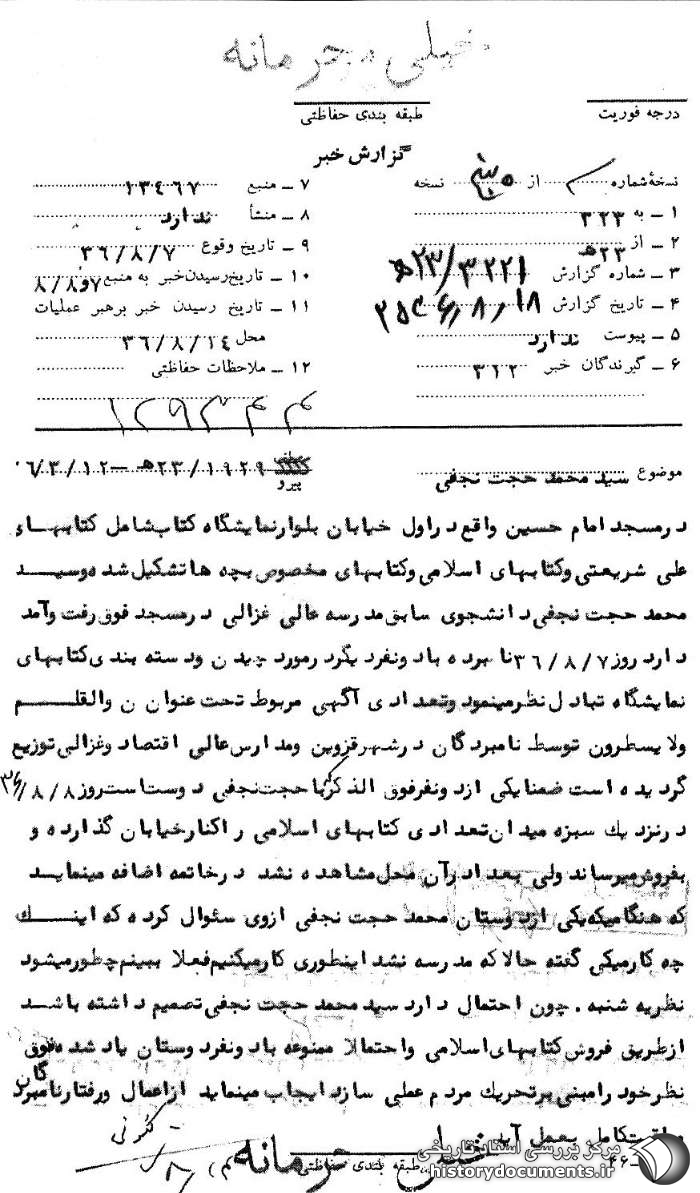 خیلی محرمانه
درجه فوریت
طبقه بندی حفاظتی
گزارش خبر
نسخهٔ شماره از نسخه
۱ ـ به ۳۲۳
۲ ـ از ۲۳ هـ
۳ ـ شماره گزارش ۳۲۲۱/۲۳هـ
۴ ـ تاریخ گزارش
۵ ـ پیوست ندارد
۶ ـ گیرندگان خبر ۳۱۲
۷ ـ منبع ۱۳۴۶۷
۸ ـ منشأ ندارد
۹ ـ تاریخ وقوع ۳۶/۸/۷
۱۰ ـ تاریخ رسیدن خبر به منبع ۷و۸/۸
۱۱ ـ تاریخ رسیدن خبر برهبر عملیات
محل ۳۶/۸/۱۴
۱۲ ـ ملاحظات حفاظتی
موضوع سید محمد حجت نجفی
پیرو ۲۳/۱۹۲۹هـ ـ ۶/۳/۱۲
در مسجد امام حسین واقع در اول خیابان بلوار نمایشگاه کتاب شامل کتابهای
علی شریعتی و کتابهای اسلامی و کتابهای مخصوص بچه ها تشکیل شده و سید
محمد حجت نجفی دانشجوی سابق مدرسه عالی غزالی در مسجد فوق رفت و آمد
دارد روز ۳۶/۸/۷ نامبرده با دونفر دیگر در مورد چیدن و دسته بندی کتابهای
نمایشگاه تبادل نظر مینمود و تعدادی آگهی مربوط تحت عنوان ن والقلم
ولایسطرون توسط نامبردگان در شهر قزوین و مدارس عالی اقتصاد و غزالی توزیع
گردیده است ضمنا یکی از دو نفر فوق الذکر با حجت نجفی دوست است روز ۳۶/۸/۸
در نزدیك سبزه میدان تعدادی کتابهای اسلامی را کنار خیابان گذارده و
بفروش میرساند ولی بعدا در آن محل مشاهده نشد در خاتمه اضافه مینماید
که هنگامیکه یکی از دوستان محمد حجت نجفی از وی سئوال کرده که اینك
چه کار میکی گفته حالا که مدرسه نشد اینطوری کار میکنیم فعلا ببینم چطور میشود
نظریه شنبه . چون احتمال دارد سید محمد حجت نجفی تصمیم داشته باشد
از طریق فروش کتابهای اسلامی و احتمالا ممنوعه با دونفر دوستان یاد شده فوق
نظر خود را مبنی بر تحریك مردم عملی سازد ایجاب مینماید از اعمال و رفتار نامبردگان
مراقبت کامل بعمل آید
طبقه بندی حفاظتی
خیلی محرمانه
مرکز بررسی اسناد تاریخی
historydocuments.ir